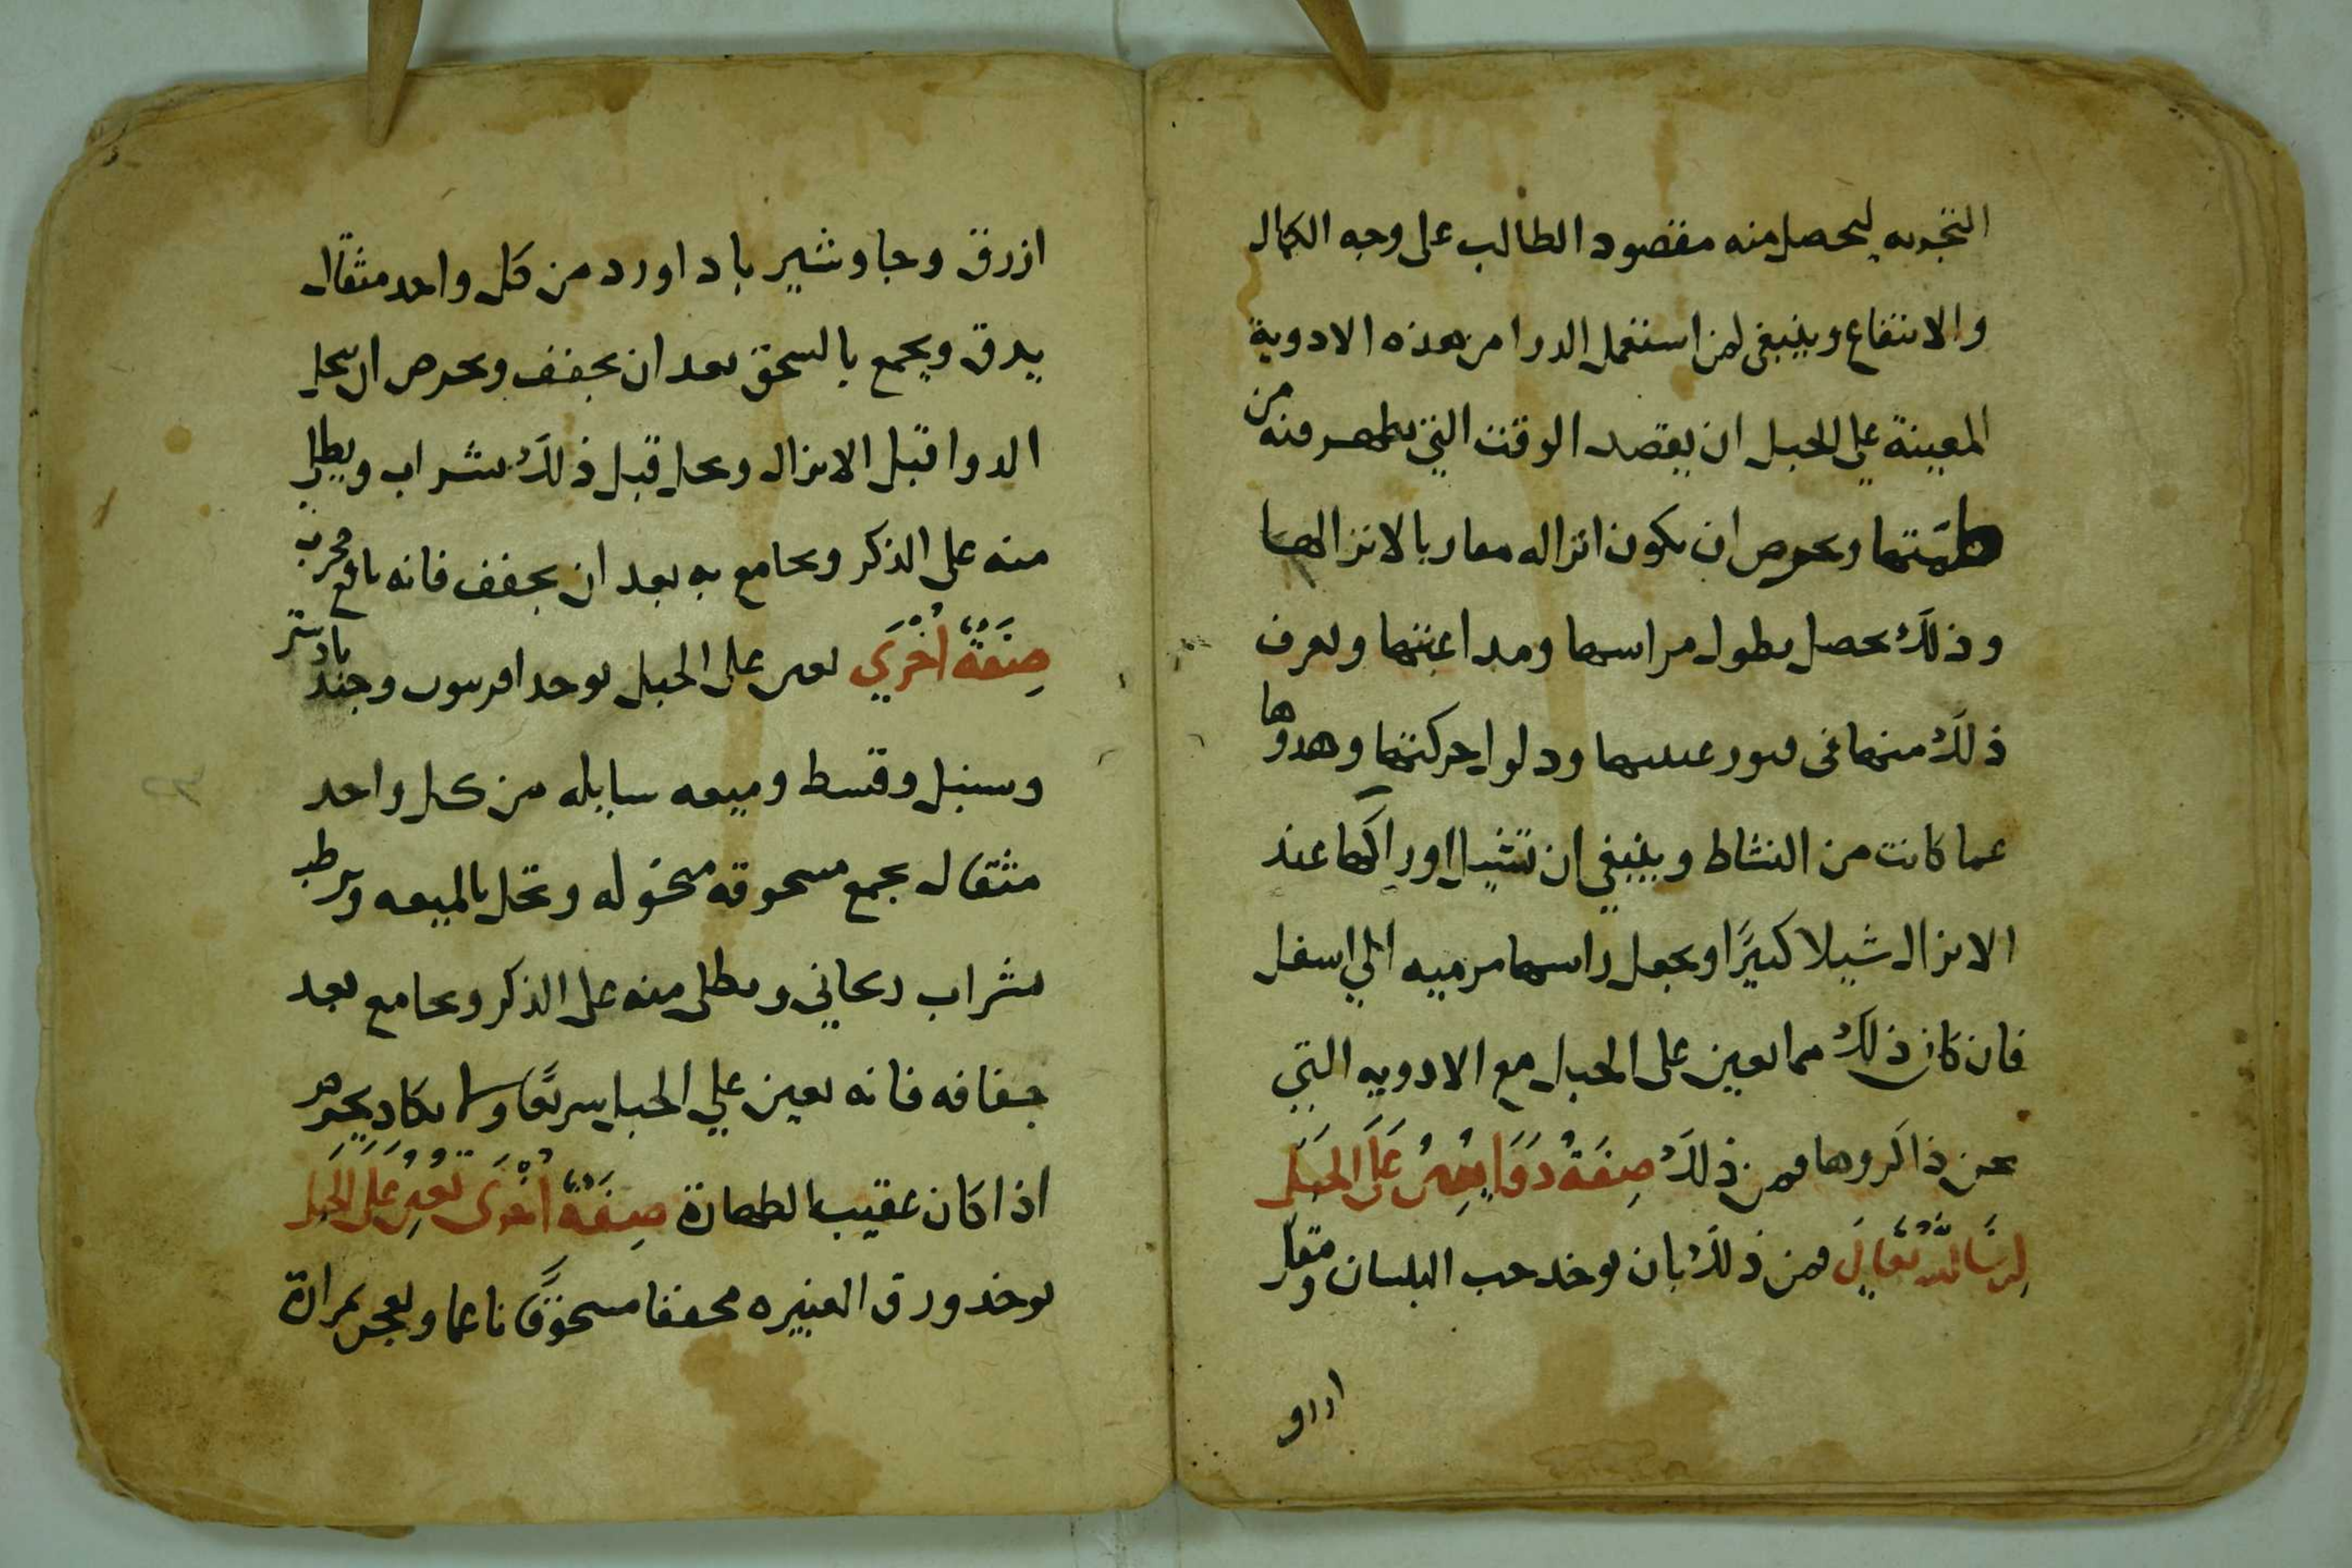 التجربه ليحصل منه مقصود الطالب على وجه الكمال
والانتفاع وينبغى لمن استعمل الدوا من هذه الادوية
المعينة على الحبل ان يقصد الوقت التي تطهر فيه من
طمثها ويحرص ان يكون انزاله مقاربا لانزالها
وذلك يحصل بطول مراسها ومداعبتها ويعرف
ذلك منها فى فتور عينيها وحركتها وهدوها
عما كانت من النشاط وينبغي ان تشيل اوراكها عند
الانزال شيلا كثيرًا ويجعل راسها مرميه الي اسفل
فان كان ذلك مما يعين على الحبل مع الادويه التي
نحن ذاكروها فمن ذلك صِفَةُ دَوَا يعين عَلَى الحبَل
ان شا الله تعالى فمن ذلك بان يوخذ حب البلسان ومقل
ازرق
ازرق وجاوشير باداورد من كل واحد مثقال
يدق ويجمع بالسحق بعد ان يجفف ويحرص ان يحل
الدوا قبل الانزال ويحل قبل ذلك بشراب ويطلى
منه على الذكر ويجامع به بعد ان يجفف فانه نافع مجرب
صِفَةٌ أُخْرَي تعين على الحبل يوخذ افربيون وجندبادستر
وسنبل وقسط وميعه سايله من كل واحد
مثقال يجمع مسحوقه منخوله وتحل بالميعه ويرطب
بشراب ريحاني ويطلى منه على الذكر ويجامع بعد
جفافه فانه يعين علي الحبل سريعًا ولا يكاد يحرم
اذا كان عقيب الطهارة صِفَةٌ أُخْرَى تُعين على الحبل
يوخذ ورق الغبيره مجففا مسحوقًا ناعما ويعجن بمرارة